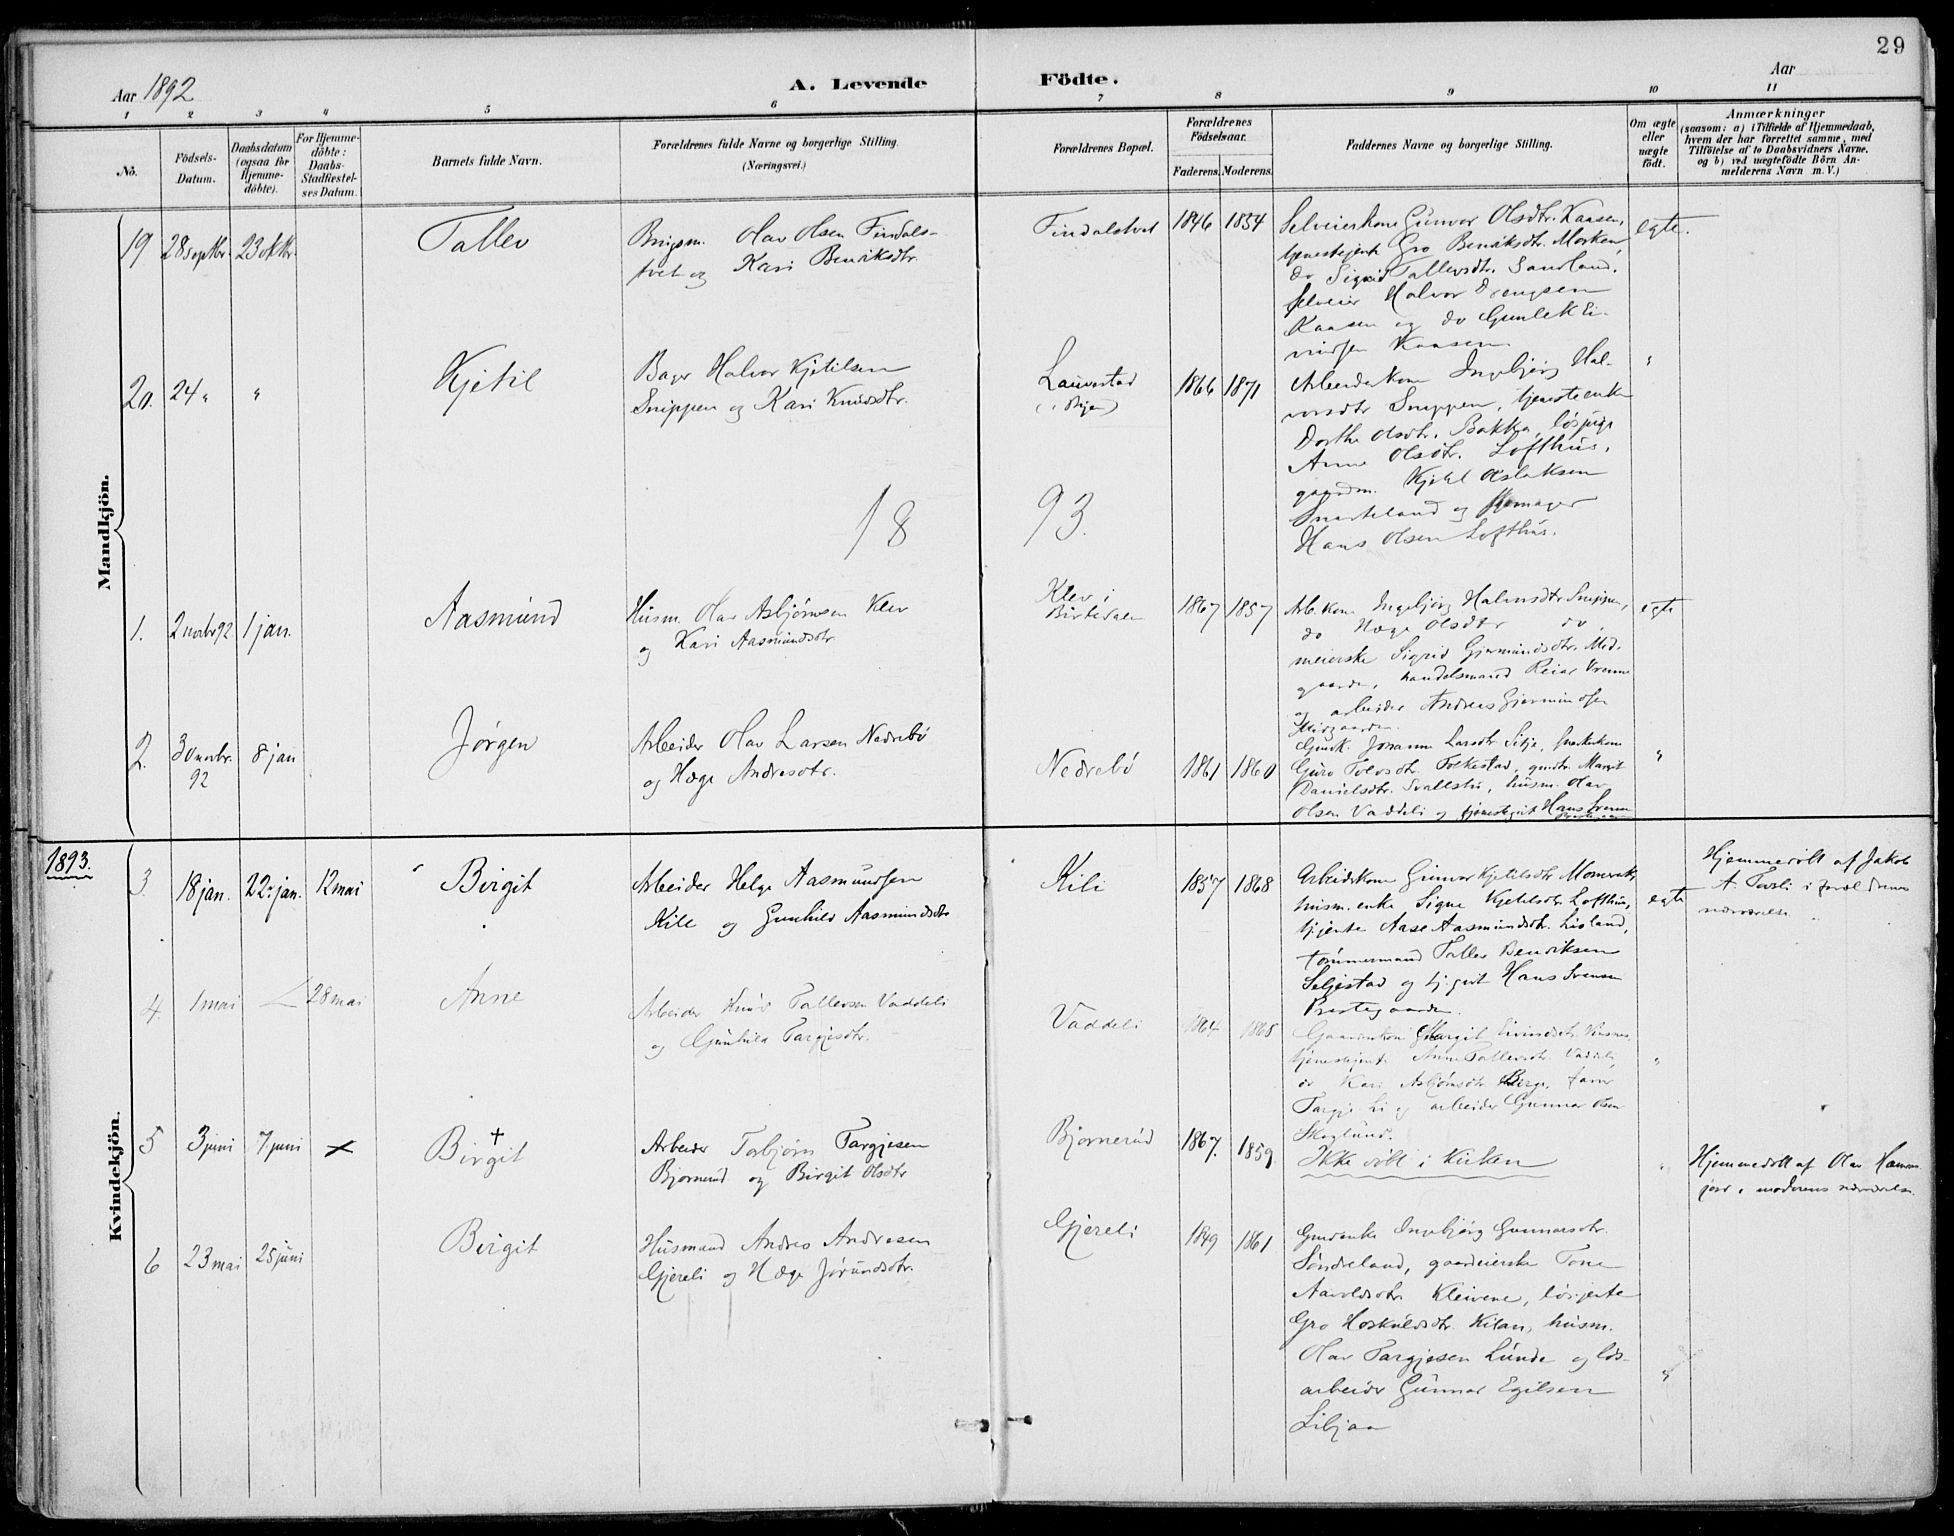 29
Aar 1892
A. Levende
Födte.
Aar
1 2 3 4 5 6 7 8 9 10 11
No.
Födsels-
Datum.
Daabsdatum
(ogsaa for
Hjemme-
döbte).
For Hjemme-
döbte:
Daabs-
Stadfæstel-
ses Datum.
Barnets fulde Navn.
Forældrenes fulde Navne og borgerlige Stilling.
(Næringsvei.)
Forældrenes Bopæl.
Forældrenes
Födselsaar.
Faderens. Moderens.
Faddernes Navne og borgerlige Stilling.
Om ægte
eller
uægte
födt.
Anmærkninger
(saasom: a) i Tilfælde af Hjemmedaab,
hvem der har forrettet samme, med
Tilföielse af to Daabsvidners Navne,
og b) ved uægtefödte Börn An-
melderens Navn m. V.)
Mandkjön.
19 28 septbr. 23 oktbr.
Tallev
Brugsm. Olav Olsen Findals-
tvet og Kari Benriksdtr.
Findalstvet
1846 1854
Selveierkone Gunvor Olsdtr. Kaasen,
tjenestejente Gro Benriksdtr. Morken
do Sigrid Tallevsdtr. Sandland,
selveier Halvor Drengsen
Kaasen og do Gunlek Ei-
vindsen Kaasen.
egte.
20. 24 " "
Kjetil
Bager Halvor Kjetilsen
Snippen og Kari Knudsdtr.
Lauvestad
1866 1871
Arbeiderkone Ingebjørg Hal-
vorsdtr Snippen, tjenesteenke
Dorthe Olsdtr. Bakka, løspige
Anne Olsdtr. Lofthus,
gaardm. Kjetil Aslaksen
Snarteland og skomager
Hans Olsen Lofthus.
"
18 93.
1. 2 novbr 92 1 jan.
Aasmund
Husm. Olav Asbjørnsen Klev
og Kari Aasmundsdtr
Klev i
Birtedalen
1867 1857
Arb.kone Ingebjørg Halvorsdtr. Snippen,
do Hæge Olsdtr do,
meierske Sigrid Gjermundsdtr. Mid-
gaarden, handelsmand Reiar Vrenne
og arbeider Andreas Gjermundsen
Midgaarden.
egte
2. 30 novbr. 92 8 jan
Jørgen
Arbeider Olav Larsen Nedrebø
og Hæge Andresdtr.
Nedrebø
1861 1860
Gmdk. Johanne Larsdtr. Sitje,
Guro Tovsdtr. Folkestad, gmdtr. Margit
Danielsdtr. Svalestu, husm. Olav
Olsen Vaddeli og tjenestegut Hans Svensen
"
1893.
Kvindekjön.
3 18 jan. 22. jan. 12 mai
Birgit
Arbeider Helge Aasmundsen
Kile og Gunhild Aasmundsdtr
Kili
1857 1868
Arbeiderkone Gunvor Kjetilsdtr Momrak,
husm. enke Signe Kjetilsdtr. Lofthus,
tj.jente Aase Aasmundsdtr. Lisland,
tømmermand Tallev Benriksen
Seljestad og tj.gut Hans Svensen
Prestegaarden.
egte
Hjemmedöbt af Jakob
A. Tovsli i forældrenes
nærværelse.
4. 1 mai 28 mai
Anne
Arbeider Knud Tallevsen Vaddeli
og Gunhild Targjesdtr.
Vaddeli
1864 1868
Gaardmkone Margit Eivindsdtr. Vinsnes,
tjenestejente Anne Tallevsdtr. Vaddeli,
do Kari Asbjørnsdtr Berge,
Targje Li og arbeider Gunnar Olsen
Skoglund.
"
5 3 juni 7 juni
Birgit
Arbeider Torbjørn Targjesen
Bjørnerud og Birgit Olsdtr
Bjørnerud
1867. 1859
Ikke døbt i kirken
"
Hjemmedöbt af Olav
i moderens nærværelse.
6 23 mai 25 juni
Birgit
Husmand Andres Andresen
Gjereli og Hæge Jørundsdtr.
Gjereli
1849 1861
Gmdenke Ingebjørg Gunnarsdtr.
Søndreland, gaardeierske Tone
Aavoldsdtr. Kleivene, løsjente
Gro Hoskuldsdtr. Kilan, husm.
Olav Targjesen Lunde og løs-
arbeider Gunnar Egilsen
Liljaa
"